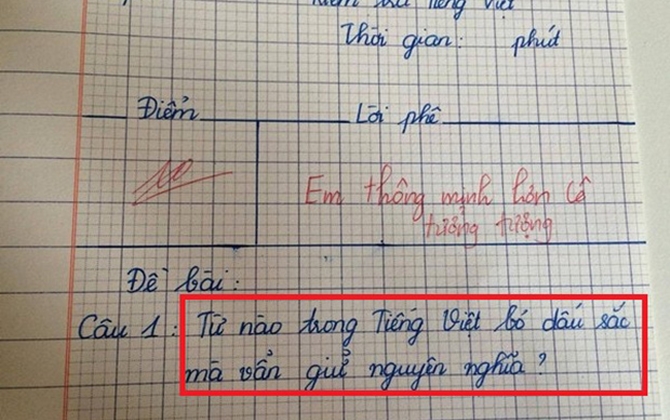 Kiểm tra Tiếng Việt
Thời gian: phút
Điểm
Lời phê
10
Em thông minh hơn cô
tưởng tượng
Đề bài:
Câu 1: Từ nào trong Tiếng Việt bỏ dấu sắc
mà vẫn giữ nguyên nghĩa?